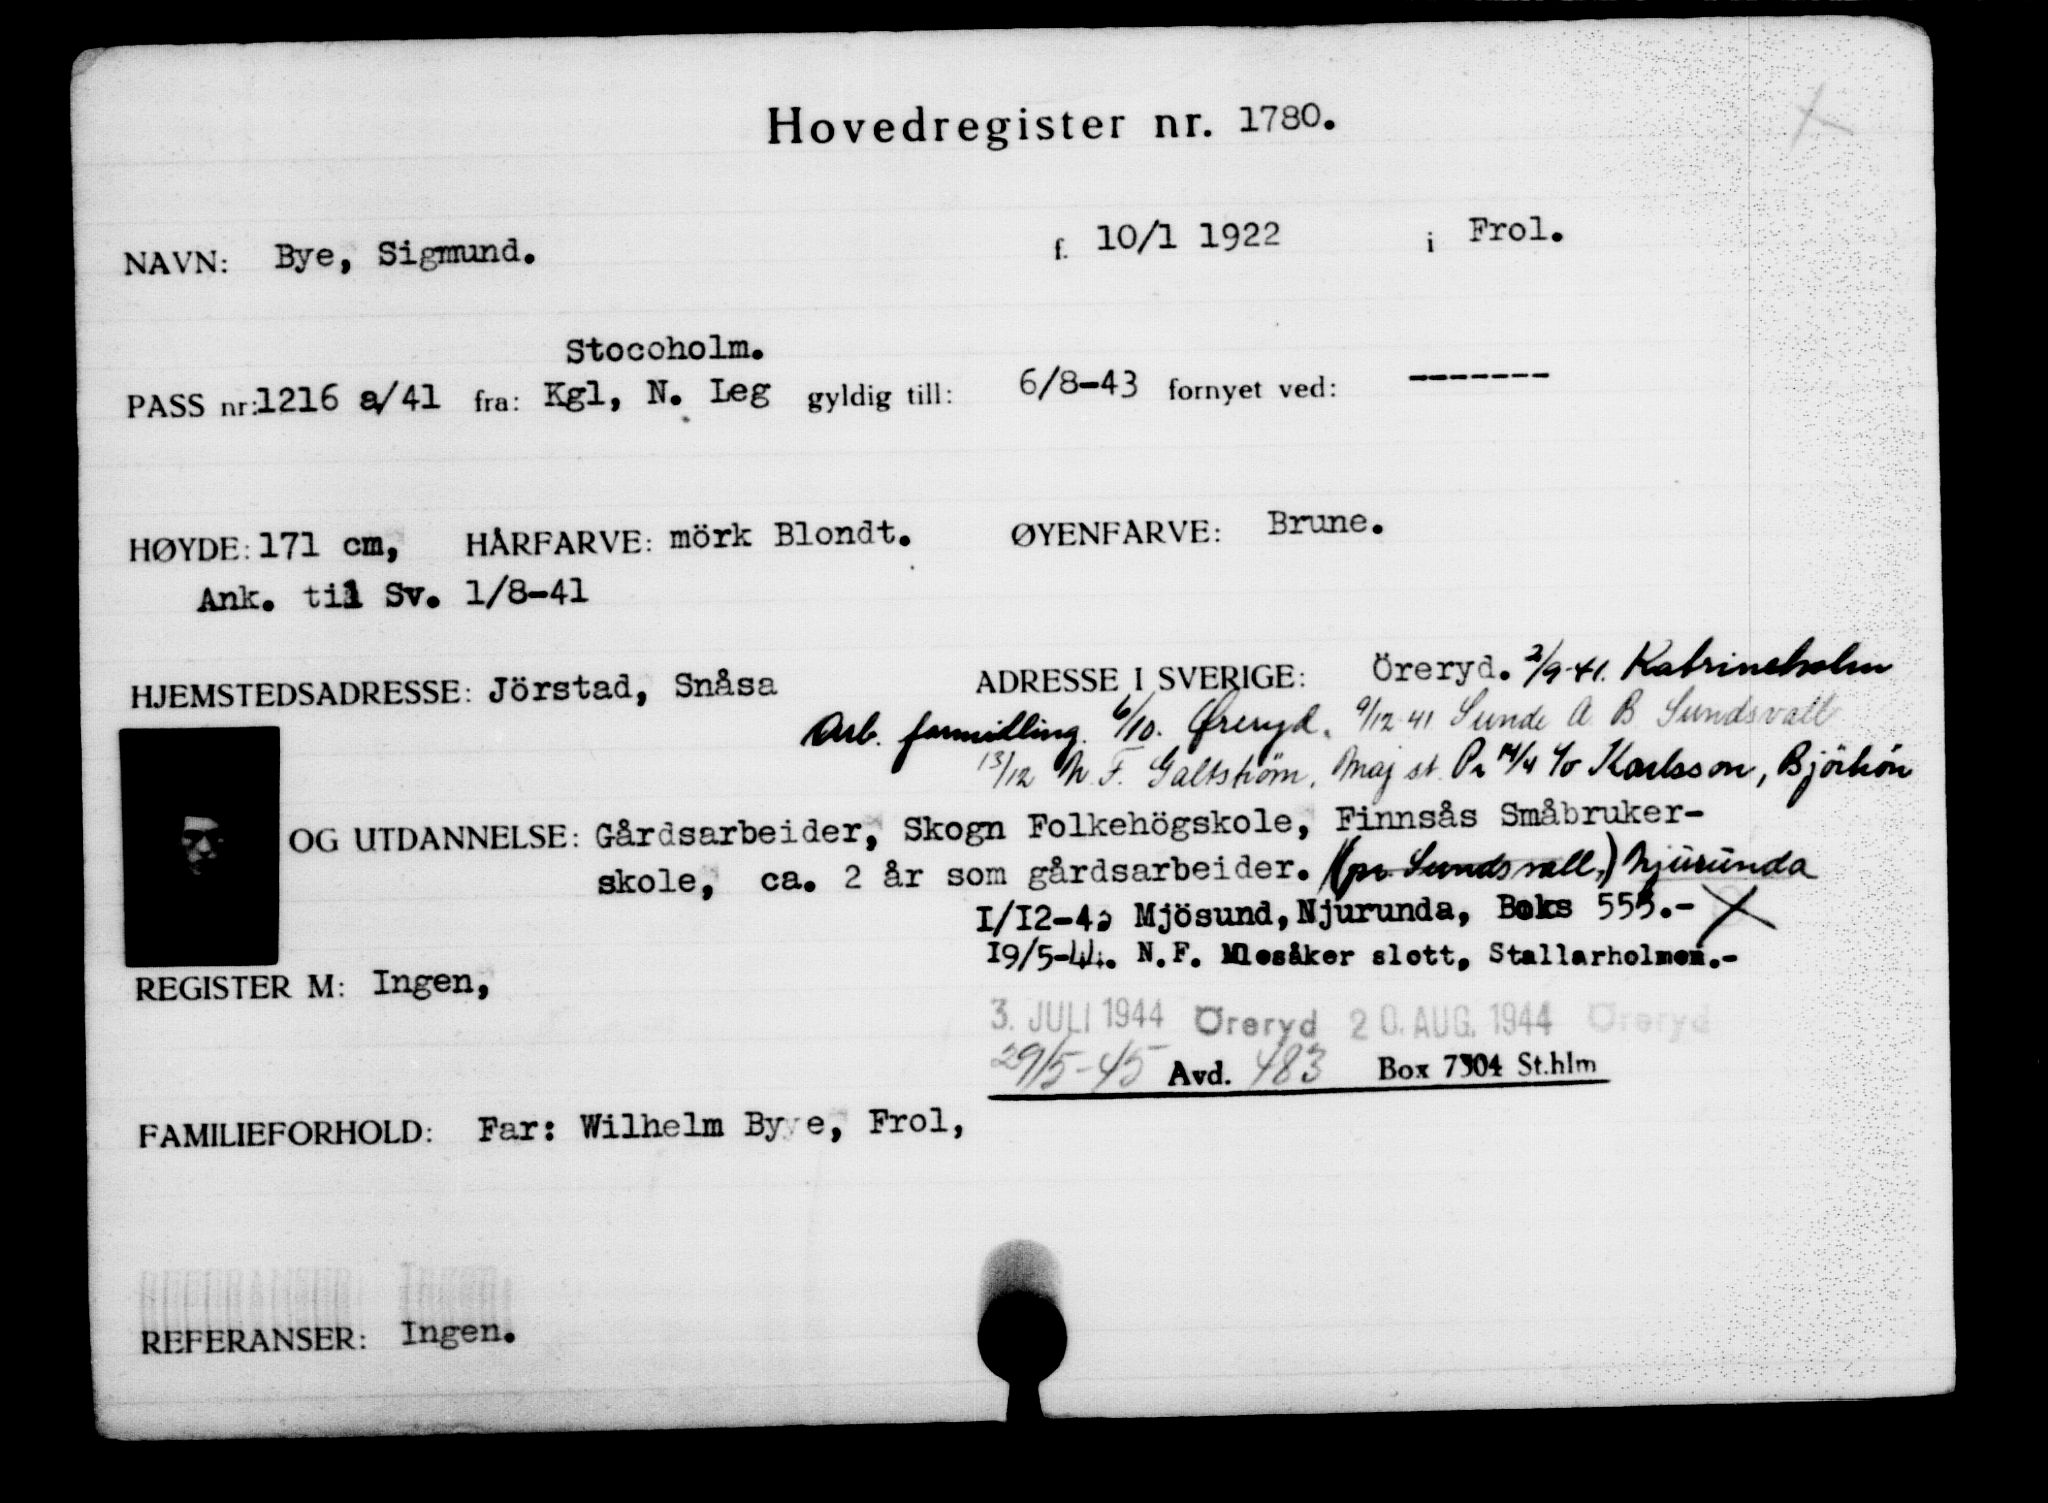 Hovedregister nr. 1780.
NAVN: Bye, Sigmund. f. 10/1 1922 i Frol.
Stocoholm.
PASS nr: 1216 a/41 fra: Kgl, N. Leg gyldig till: 6/8-43 fornyet ved: -------
HØYDE: 171 cm, HÅRFARVE: mörk Blondt. ØYENFARVE: Brune.
Ank. til Sv. 1/8-41
HJEMSTEDSADRESSE: Jörstad, Snåsa ADRESSE I SVERIGE: Öreryd. 2/9-41. Katrineholm
Arb. formidling. 6/10. Øreryd. 9/12-41 Sunde A B Sundsvall
13/12 N. F. Galtstrøm, Maj st. Pr 14/4 c/o Karlsson, Björkön
OG UTDANNELSE: Gårdsarbeider, Skogn Folkehögskole, Finnsås Småbruker-
skole, ca. 2 år som gårdsarbeider. (pr. Sundsvall,) Njurunda
1/12-42 Mjösund, Njurunda, Boks 555.-
19/5-44. N.F. Mlesåker slott, Stallarholmen.-
REGISTER M: Ingen,
3. JULI 1944 Öreryd 20. AUG. 1944 Öreryd
29/5-45 Avd. 483 Box 7304 St.hlm
FAMILIEFORHOLD: Far: Wilhelm Bye, Frol,
REFERANSER: Ingen.